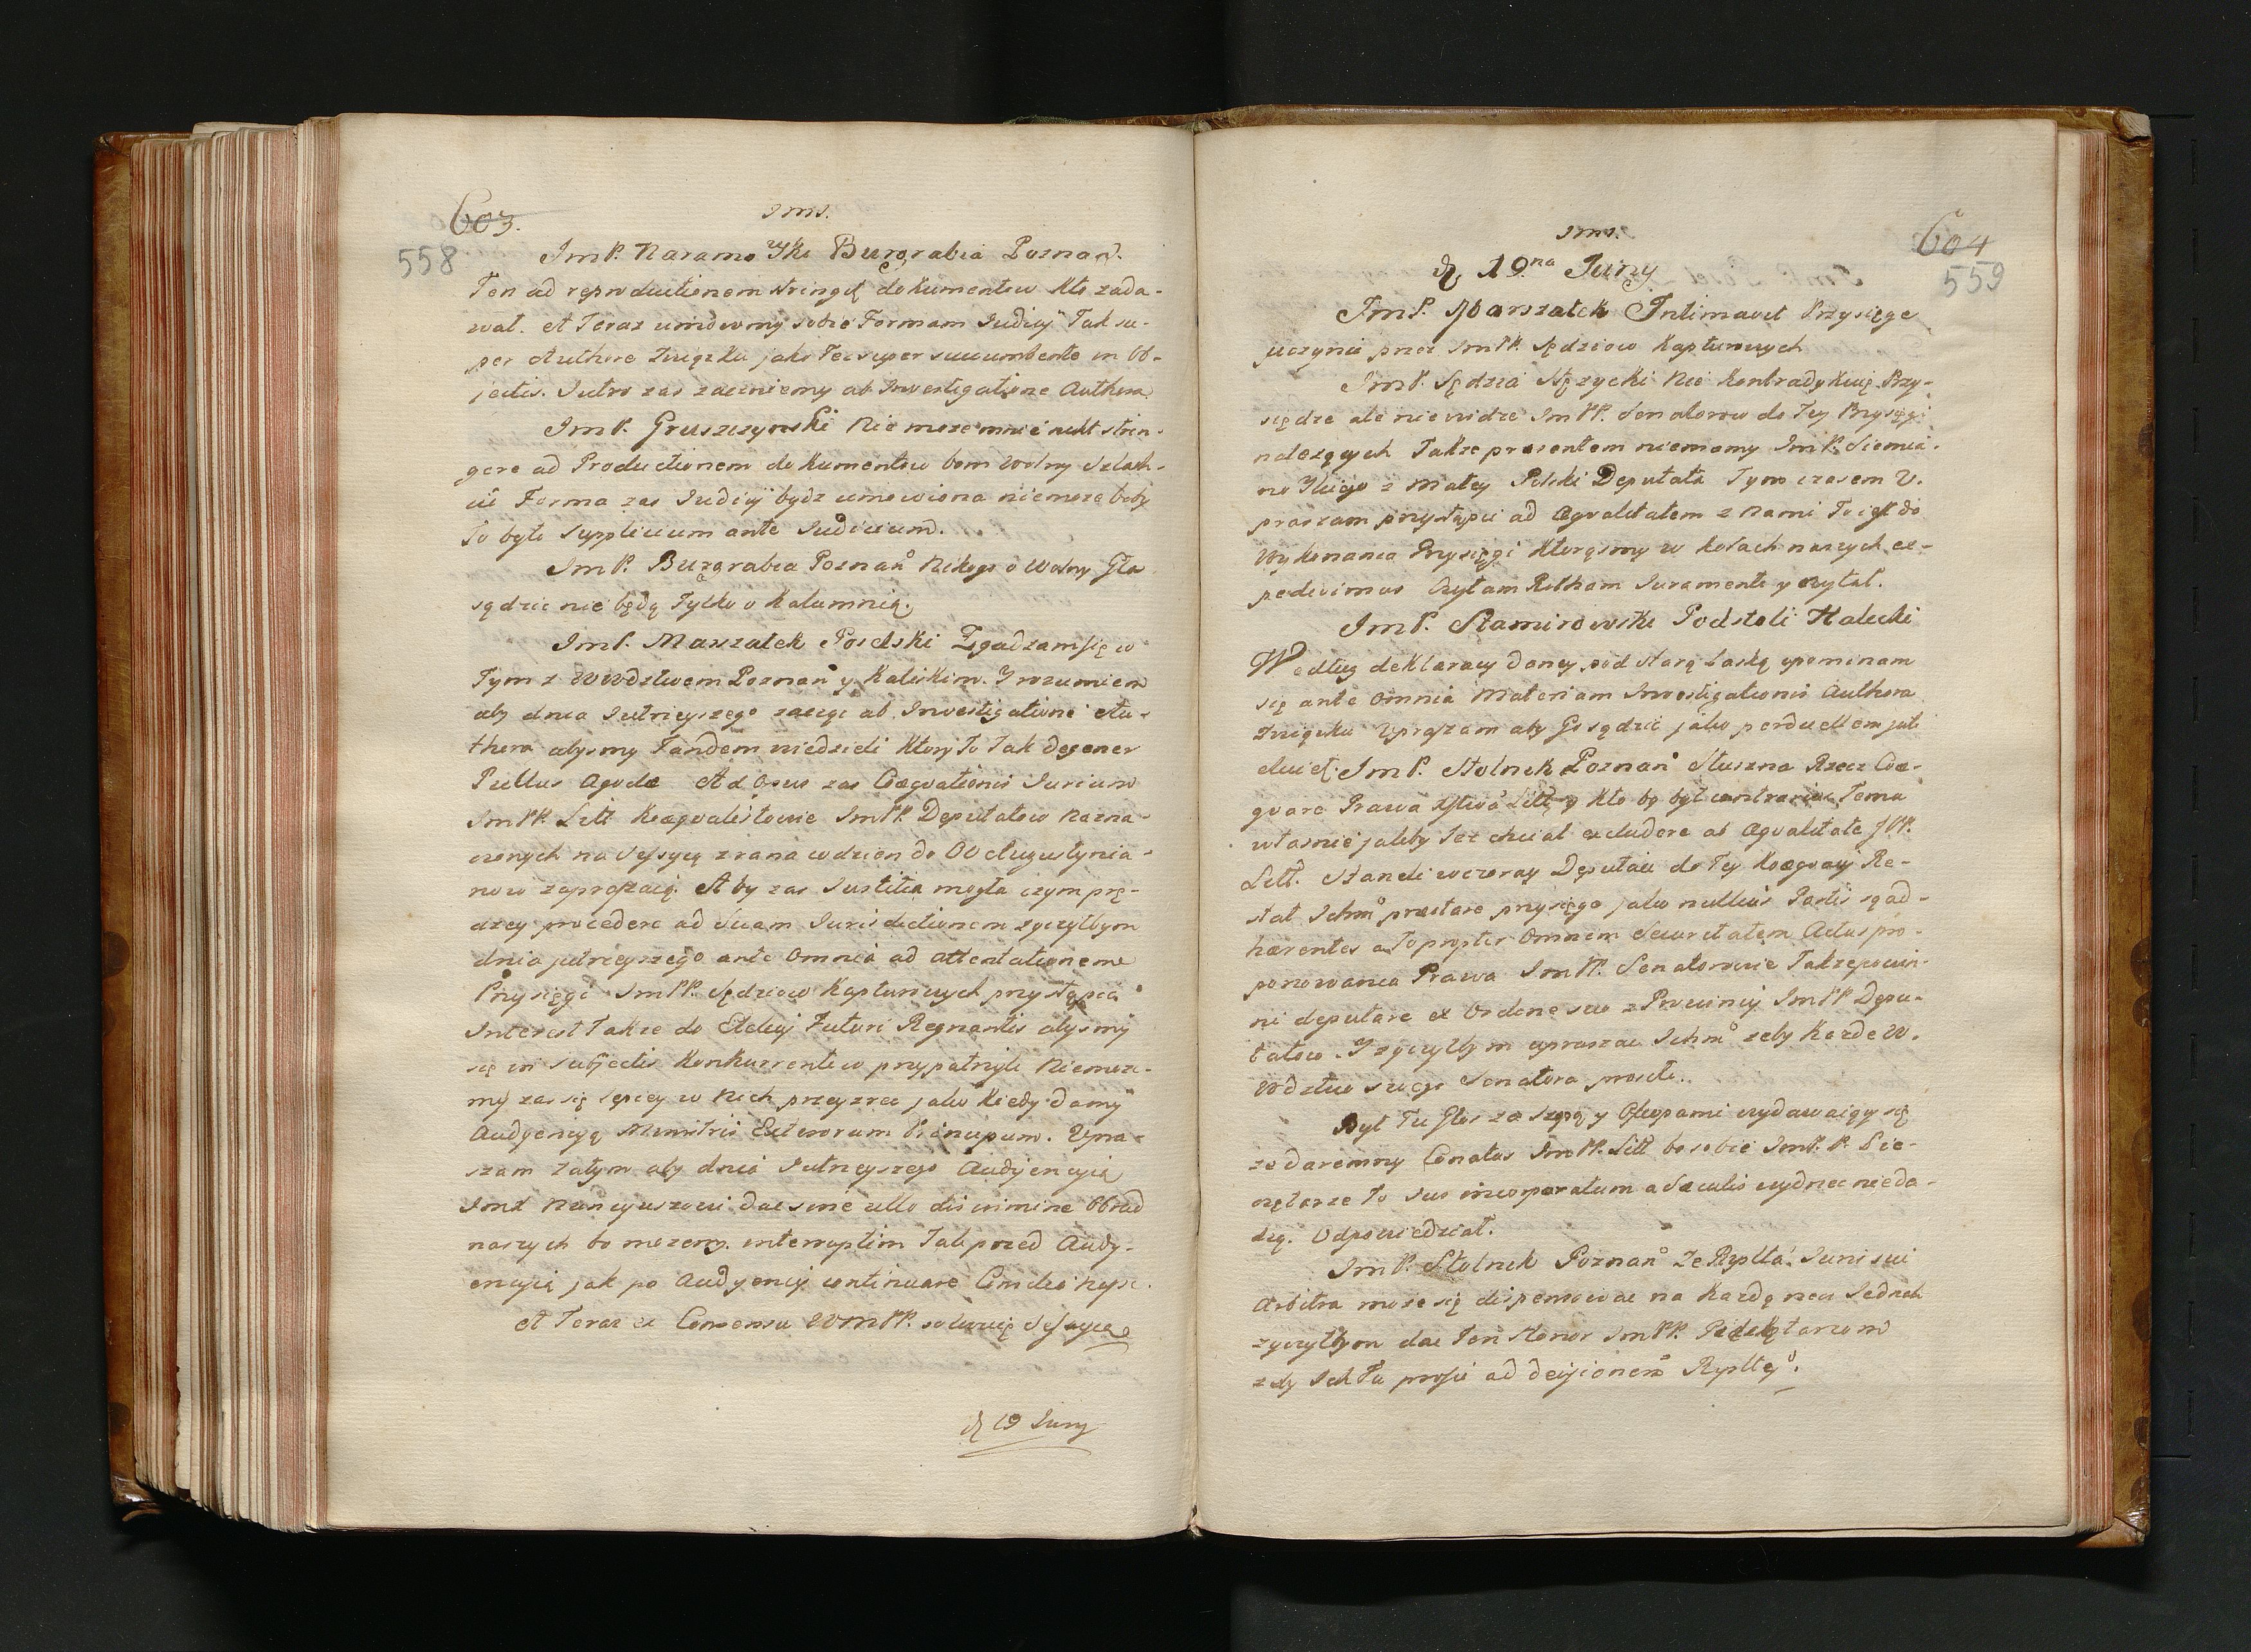 603.
558
Jms.
JmP. Naramowski Burgrabia Poznan.
Ten ad reproductionem stringit dokumentow kto zada-
wał. A Teraz umowmy sobie Formam Judicij Tak su-
per Authore Związku jako Też super succumbente in Ob-
jectis. Jutro zas zaczniemy ab Investigatione Authora
JmP. Gruszczynski Nie moze mnie nikt strin-
gere ad Productionem dokumentow bom Wolny Szlach-
cic Forma zas Judicij bydz umowiona niemoze boby
To było Supplicium ante Judicium.
JmP. Burgrabia Poznan Nikogo o Wolny Głos
sądzic nie będą Tylko o Kalumnią.
JmP. Marszałek Poselski Zgadzam się w
Tym z WWdztwem Poznan y Kaliskim. Y rozumiem
aby dnia Jutrzeyszego zacząc ab Investigatione Au-
thora abysmy Tandem wiedzieli Ktory To Tak degener
Pullus Aquilæ Ad Opus zas Coæquationis Jurium
JmPP. Litt Koæqualistowie JmPP. Deputatow nazna-
czonych na Sessyą z rana w dzien do OO Augustynia-
now zapraszaią. Aby zas Justitia mogła czym prę-
dzey procedere ad suam Jurisdictionem zyczyłbym
dnia jutrzeyszego ante Omnia ad attentationem
Przysięgi JmPP. Sędziow Kapturowych przystąpic
Interest Takze do Elekcij Futuri Regnantis abysmy
się in Subjectis Konkurrentow przypatrzyli Niemoze-
my zas się lepiey w Nich przeyrzec jako Kiedy damy
Audyencyą Ministris Exterorum Principum. Upra-
szam Zatym aby dnia Jutrzeyszego Audyencyia
Jmd Nuncyuszowi dac sine ullo discrimine Obrad
naszych bo mozemy interruptim Tak przed Audy-
encyią jak po Audyencij continuare
A Teraz ex Consensu WMPP. solwuię Sessyią
d 19 Juny
Jms.
604
559
d 19.na Juny
JmP. Marszałek Intimavit Przysięge
uczynic przez JmPP. Sędziow Kapturowych
JmP. Sędzia Łęzycki Nie Kontradykuię Przy-
siędze ale nie widze JmPP. Senatorow do Tey Przysięgi
nalezących Takze præsentem niemamy JmP. Siemia-
nowskiego z Małey Polski Deputata Tym czasem U-
praszam przystąpic ad Æqualitatem z Nami To iest do
Wykonania Przysięgi Ktorąsmy w kołach naszych ex-
pedivimus Czytam Rotham Juramenti y czytał.
JmP. Stamirowski Podstoli Halicki
Według deklaracij daney pod starą Laską upominam
się ante Omnia Materiam Investigationis Authora
Związku Upraszam aby Go sądzic jako perduellem jak
JmP. Stolnik Poznan Słuszna Rzecz Coæ-
quare Prawa Litt y Kto by był contrarius Temu
własnie jakby Też chciał excludere ab Æqualitate JPP.
Litt. Stanęli wczoray Deputaci do Tey Koæquacij Re-
stat Jchm præstare przysięge jako nullius Partis są ad-
hærentes a To propter Omnem Securitatem Actus pro-
ponowania Prawa JmPP. Senatorowie Takze powin-
ni deputare ex Ordine suo z Prowincij JmPP Depu-
tatow. Y zyczyłbym upraszac Jchm zeby Kazde W.
Wdztwo swego Senatora prosiło.
Był Tu Głos za szopą y Okopami wydawaiący się
ze daremny Conatus JmPP. Litt bo sobie JmP. P. Pie-
czętarze to Jus incorporatum a Sæculis wydrzec nieda-
dzą. Odpowiedział.
JmP. Stolnik Poznan Ze Rzplta Juris sui
Arbitra moze się dispensowac na Kazdą rzecz Jednak
zyczyłbym dac Ten Honor JmPP. Pieczętarzom
zeby Ich Tu prosic ad decisionem Rzpltey.